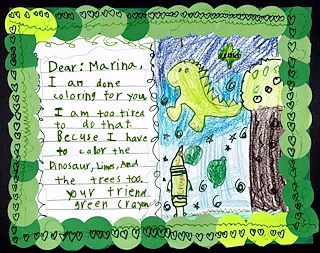 Dear: Marina,
I am done
coloring for you
I am too tired
to do that
Becuse I have
to color the
Dinosaur, Limes, And
the trees too.
your friend
green crayon